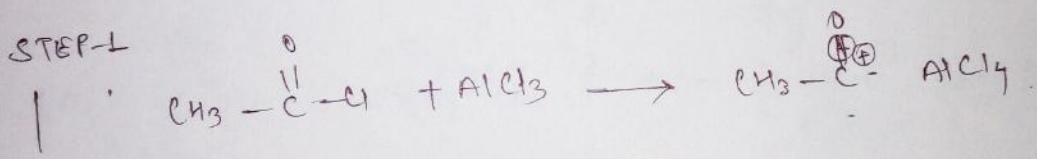 STEP-1
O O
CH3 - C - Cl + AlCl3 → CH3 - C ⊕ - AlCl4